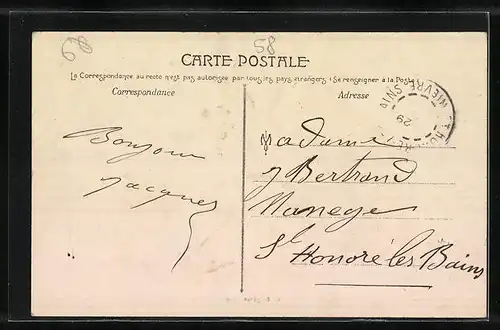 58
CARTE POSTALE
La Correspondance au recto n'est pas autorisée par tous les pays étrangers (Se renseigner à la Poste)
Correspondance
Adresse
NIEVRE
29
Bonjour
Jacques
Madame
J Bertrand
Manege
St Honoré les Bains